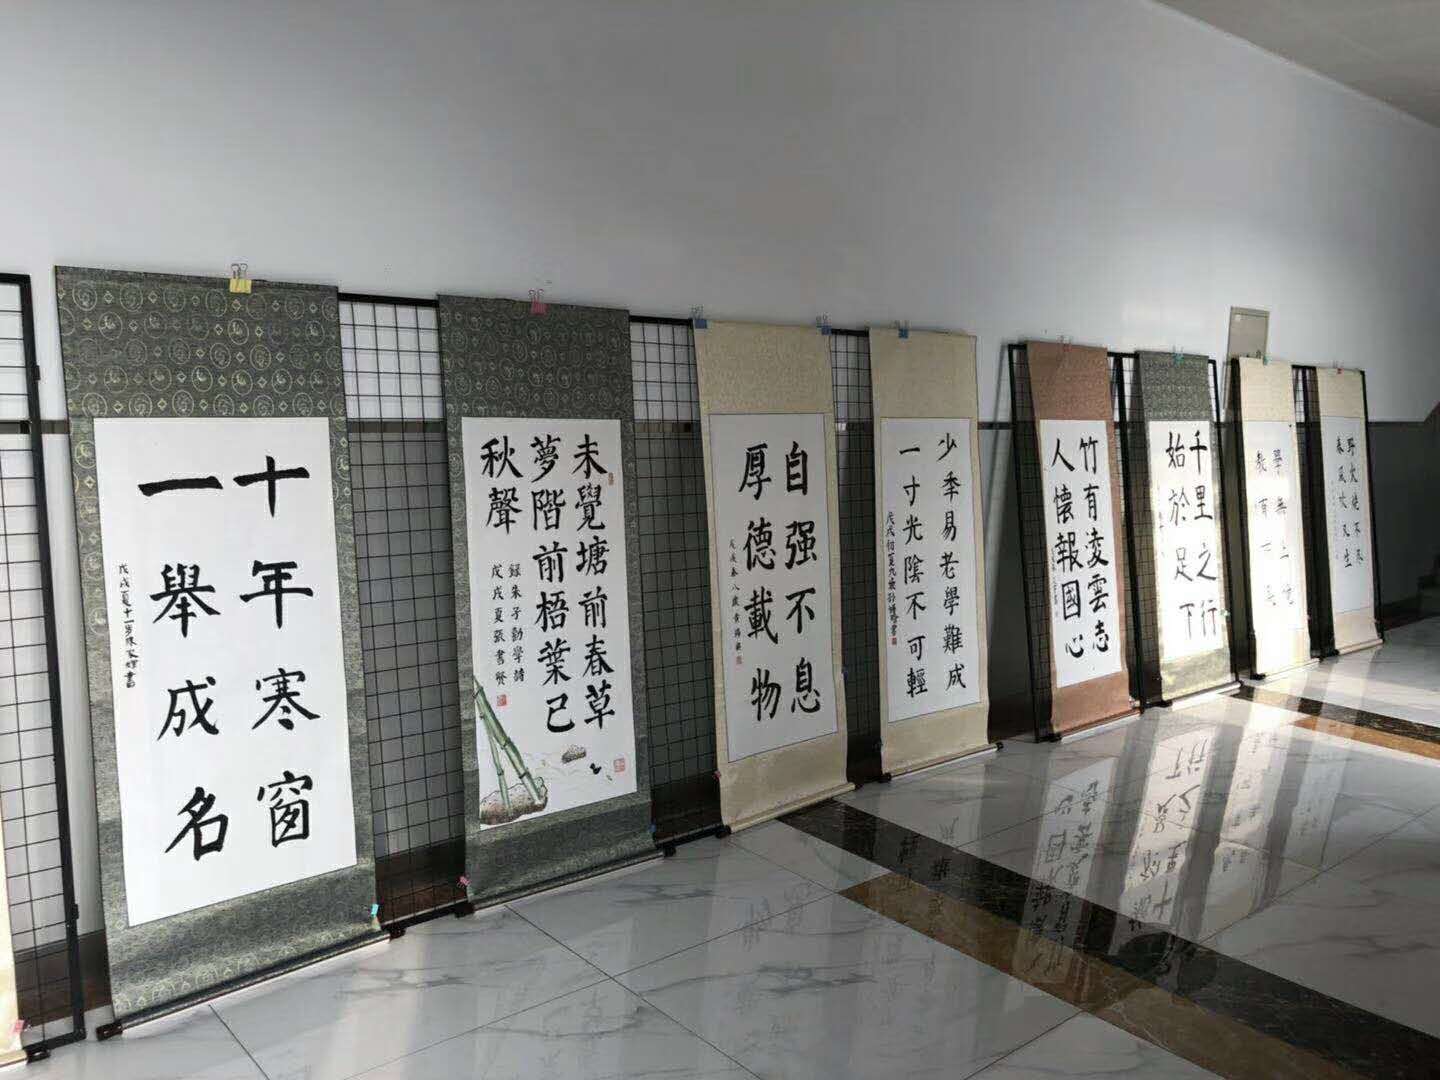 十年寒窗
一舉成名
戊戌夏十一岁書
未覺塘前春草
夢階前梧葉已
秋聲
録朱子勸學詩
戊戌夏張書賢
自强不息
厚德載物
戊戌春八歲黄
少秊易老學難成
一寸光陰不可輕
戊戌初夏九歲孙書
竹有凌雲志
人懷報國心
千里之行
始於足下
學無止境
教有
野火烧不尽
春風吹又生